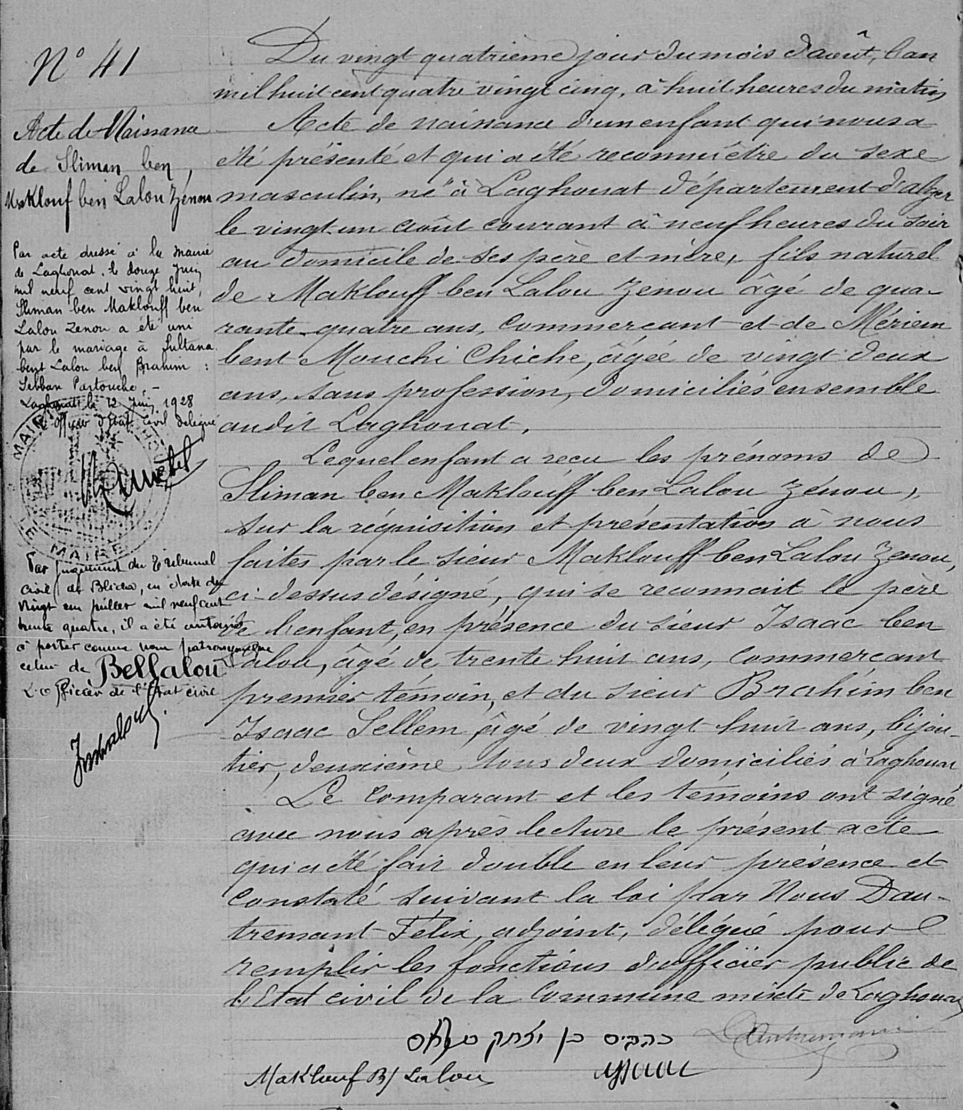 N° 41
Acte de Naissance
de Sliman ben
Maklouf ben Lalou Zenou
Par acte dressé à la mairie
de Laghouat, le douze Juin
mil neuf cent vingt huit,
Sliman ben Maklouff ben
Lalou Zenou a été uni
par le mariage à Sultana
bent Lalou ben Brahim
Sebban Partouche, –
Laghouat le 12 Juin 1928
l'officier d'état civil délégué
MAIRIE
MAIRE
Par jugement du Tribunal
civil de Blida, en date du
vingt un juillet mil neuf cent
trente quatre, il a été autorisé
à porter comme nom patronymique
celui de Bellalou
L'officier de l'état civil
Du vingt quatrième jour du mois d'août, l'an
mil huit cent quatre vingt cinq, à huit heures du matin
Acte de naissance d'un enfant qui nous a
été présenté et qui a été reconnu être du sexe
masculin, né à Laghouat département d'Alger
le vingt un août courant à neuf heures du soir
au domicile de ses père et mère, fils naturel
de Maklouff ben Lalou Zenou âgé de qua-
rante quatre ans, commerçant et de Mériem
bent Mouchi Chiche, âgée de vingt deux
ans, sans profession, domiciliés ensemble
audit Laghouat.
Lequel enfant a reçu les prénoms de
Sliman ben Maklouff ben Lalou Zénou,
sur la réquisition et présentation à nous
faites par le sieur Maklouff ben Lalou Zenou,
ci-dessus désigné, qui se reconnait le père
de l'enfant, en présence du sieur Isaac ben
Lalou, âgé de trente huit ans, commerçant
premier témoin, et du sieur Brahim ben
Isaac Sellem, âgé de vingt huit ans, bijou-
tier, deuxième, tous deux domiciliés à Laghouat
Le comparant et les témoins ont signé
avec nous après lecture le présent acte
qui a été fait double en leur présence et
constaté suivant la loi par Nous Dau-
tremant Félix, adjoint, délégué pour
remplir les fonctions d'officier public de
l'Etat civil de la Commune mixte de Laghouat
Dautremant
Maklouf B/ Lalou